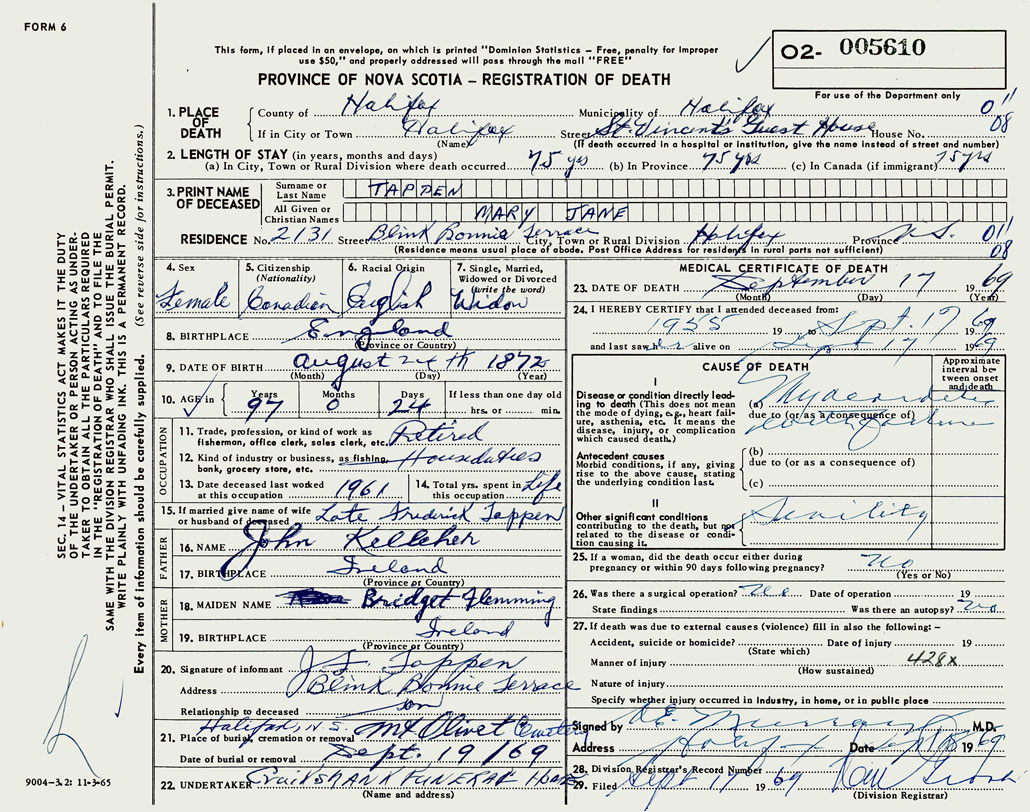 FORM 6
This form, if placed in an envelope, on which is printed "Dominion Statistics – Free, penalty for improper
use $50," and properly addressed will pass through the mail "FREE"
PROVINCE OF NOVA SCOTIA – REGISTRATION OF DEATH
02- 005610
For use of the Department only
1. PLACE OF DEATH
County of Halifax Municipality of Halifax 01"
If in City or Town Halifax Street St. Vincent's Guest House House No. 08
(Name) (If death occurred in a hospital or institution, give the name instead of street and number)
2. LENGTH OF STAY (in years, months and days)
(a) In City, Town or Rural Division where death occurred 75 yrs (b) In Province 75 yrs (c) In Canada (if immigrant) 75 yrs
3. PRINT NAME OF DECEASED
Surname or Last Name TAPPEN
All Given or Christian Names MARY JANE
RESIDENCE No. 2131 Street Blink Bonnie Terrace City, Town or Rural Division Halifax Province N.S. 01"
(Residence means usual place of abode. Post Office Address for residents in rural parts not sufficient) 08
4. Sex Female
5. Citizenship (Nationality) Canadian
6. Racial Origin English
7. Single, Married, Widowed or Divorced (write the word) Widow
8. BIRTHPLACE England
(Province or Country)
9. DATE OF BIRTH August 24th 1872
(Month) (Day) (Year)
10. AGE in Years 97 Months 0 Days 24 If less than one day old
hrs. or min.
OCCUPATION
11. Trade, profession, or kind of work as
fisherman, office clerk, sales clerk, etc. Retired
12. Kind of industry or business, as fishing,
bank, grocery store, etc. Houseduties
13. Date deceased last worked
at this occupation 1961
14. Total yrs. spent in
this occupation Life
15. If married give name of wife
or husband of deceased Late Fredrick Tappen
FATHER
16. NAME John Kellcher
17. BIRTHPLACE Ireland
(Province or Country)
MOTHER
18. MAIDEN NAME Bridget Flemming
19. BIRTHPLACE Ireland
(Province or Country)
20. Signature of informant J. F. Tappen
Address Blink Bonnie Terrace
Relationship to deceased son
Halifax, N.S. Mt Olivet Cemetery
21. Place of burial, cremation or removal
Date of burial or removal Sept. 19/69
22. UNDERTAKER Cruikshank Funeral Home
(Name and address)
MEDICAL CERTIFICATE OF DEATH
23. DATE OF DEATH September 17 1969
(Month) (Day) (Year)
24. I HEREBY CERTIFY that I attended deceased from:
1955 19 to Sept. 17 1969
and last saw her alive on Sept 17 1969
CAUSE OF DEATH
Approximate interval between onset and death
I
Disease or condition directly leading to death (This does not
the mode of dying, e.g., heart failure, asthenia, etc. It means the
disease, injury, or complication
which caused death.)
(a) Myocarditis
due to (or as a consequence of)
with failure
Antecedent causes
Morbid conditions, if any, giving
rise to the above cause, stating
the underlying condition last.
(b)
due to (or as a consequence of)
(c)
II
Other significant conditions
contributing to the death, but not
related to the disease or condition causing it.
Senility
25. If a woman, did the death occur either during
pregnancy or within 90 days following pregnancy? No
(Yes or No)
26. Was there a surgical operation? No Date of operation 19
State findings Was there an autopsy? No
27. If death was due to external causes (violence) fill in also the following:–
Accident, suicide or homicide? Date of injury 19
(State which)
Manner of injury 428x
(How sustained)
Nature of injury
Specify whether injury occurred in industry, in home, or in public place
Signed by Murray M.D.
Address Halifax Date Sept 18 1969
28. Division Registrar's Record Number
29. Filed Sept 17 1969
(Division Registrar)
SEC. 14 – VITAL STATISTICS ACT MAKES IT THE DUTY
OF THE UNDERTAKER OR PERSON ACTING AS UNDER-
TAKER TO OBTAIN ALL THE PARTICULARS REQUIRED
IN THE "REGISTRATION OF DEATH" AND TO FILE THE
SAME WITH THE DIVISION REGISTRAR WHO SHALL ISSUE THE BURIAL PERMIT.
WRITE PLAINLY WITH UNFADING INK. THIS IS A PERMANENT RECORD.
Every item of information should be carefully supplied. (See reverse side for instructions.)
9004-3.2: 11-3-65